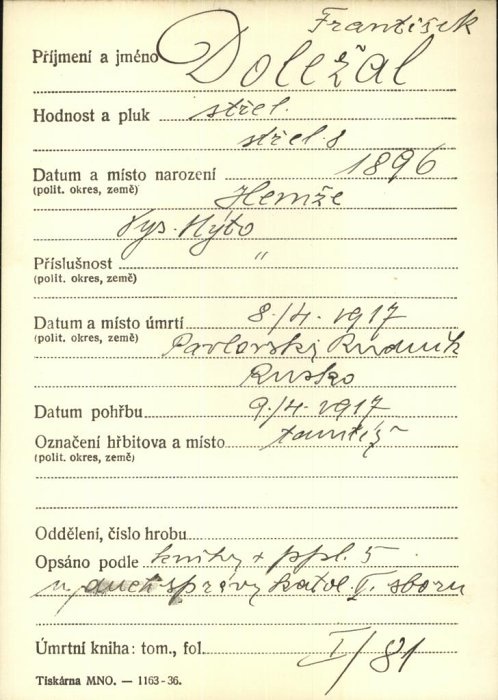 František
Příjmení a jméno Doležal
Hodnost a pluk střel.
střel. 8
Datum a místo narození 1896
(polit. okres, země) Hemže
Vys. Mýto
Příslušnost "
(polit. okres, země)
Datum a místo úmrtí 8./4. 1917
(polit. okres, země) Pavlovskij Rudnik
Rusko
Datum pohřbu 9./4. 1917
Označení hřbitova a místo tamtéž
(polit. okres, země)
Oddělení, číslo hrobu
Opsáno podle knihy + ppl. 5
duch. správy katol. I. sboru
Úmrtní kniha: tom., fol. I/81
Tiskárna MNO. — 1163-36.